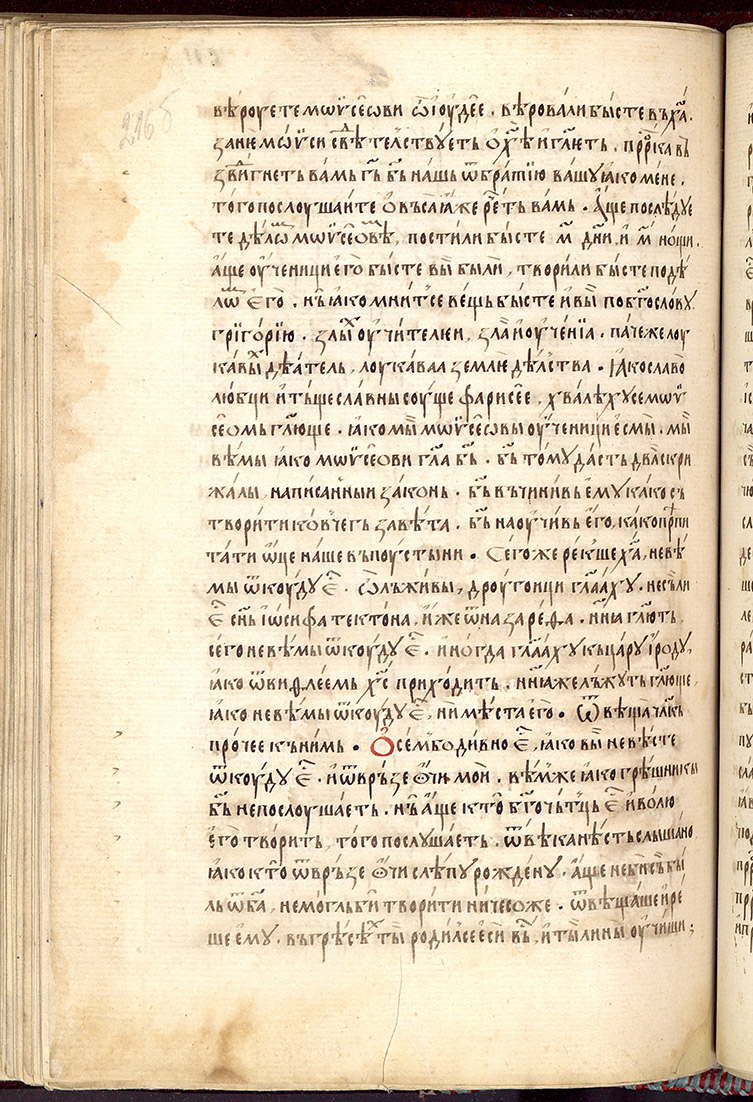 216 б
вѣроуете мѡѵсеѡви ѽ і҆оудѣе . вѣровали бысте въ ха҃ .
зане мѡѵси свѣтелствꙋеть ѡ хѣ҃ и҆ гл҃еть . прⷪ҇рка въ
здвигнеть вамь гь҃ бь҃ нашь ѿ братїю вашꙋ ꙗко мене .
того послоушаите ѡ въсѧ ꙗ҆же рⷱ҇еть вамь . А҆ще послѣдꙋе
те дѣлѡⷨ мѡѵсеѡвѣⷨ , постили бысте м҃ дн҃и , и҆ м҃ нощи .
а҆ще ѹ҆ченици е҆го бысте вы были , творили бысте по дѣ
лѡⷨ е҆го . нѣ ꙗко мнитсе вещь бысте и҆ вы по бг҃ословꙋ
григѡрїю . злыⷯ ѹ҆чителеи , зла и҆ ѹ҆ченїа . паче же лоу
кавыⷯ дѣлатель , лоукаваа землѥдѣлства . Ꙗко славо
любци и҆ тъщеславны соуще фарисее , хвалѣхꙋсе мѡѵ
сеѡмь гл҃юще . ꙗко мы мѡѵсеѡвы ѹ҆ченици е҆смы . мы
вѣмы ꙗко мѡѵсеѡви гл҃а бь҃ . бь҃ томꙋ дасть двѣ скри
жали , написанныи законь . бь҃ въчинивь е҆мꙋ како съ
творити ковчегь завѣта . бь҃ наоучивь е҆го , како прⷷпи
тати ѿце наше въ поустыни . Сего же рекше ха҃ , не вѣ
мы ѿкоудꙋ е҃ . ѽ лъживы , дроугоици гл҃аахꙋ . не съ ли
е҃ сн҃ь і҆ѡсифа тектона , и҆же ѿ назареѳа . нн҃ꙗ гл҃ють
сего не вѣмы ѿкоудꙋ е҃ . и҆ногда гл҃аахꙋ къ царꙋ і҆родꙋ ,
ꙗко ѿ виѳлеемь хс҃ приходить . нн҃ꙗ же лъжꙋть гл҃юще ,
ꙗко не вѣмы ѿкоудꙋ е҃ , ни мѣста е҆го . Ѿвѣща чл҃кь
прочее къ нимь . Ѡ семь бо дивно е҃ , ꙗко вы не вѣсте
ѿкоудꙋ е҃ . и҆ ѿвръзе ѻчи мои . вѣм же ꙗко грѣшникы
бь҃ не послоушаеть . нѣ а҆ще кто бг҃очтць е҃ и҆ волю
е҆го творить , того послꙋшаеть . ѿ вѣка нѣсть слышано ,
ꙗко кто ѿвръзе ѻчи слѣпꙋ рожденꙋ . а҆ще не би съ бы
ль ѿ ба҃ , не могль би творити ничесоже . ѿвѣщаше и҆ ре
ше е҆мꙋ . въ грѣсѣⷯ ты родилсе е҆си въⷭ҇ , и҆ ты ли ны ѹ҆чиши ;